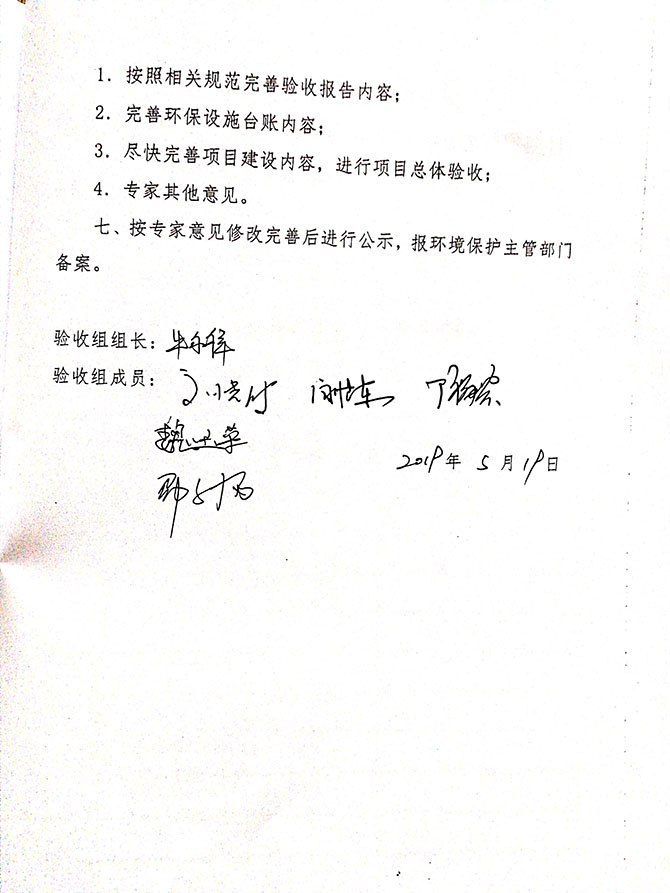 1. 按照相关规范完善验收报告内容；
2. 完善环保设施台账内容；
3. 尽快完善项目建设内容，进行项目总体验收；
4. 专家其他意见。
七、按专家意见修改完善后进行公示，报环境保护主管部门
备案。
验收组组长：
验收组成员：
2019年 5月19日